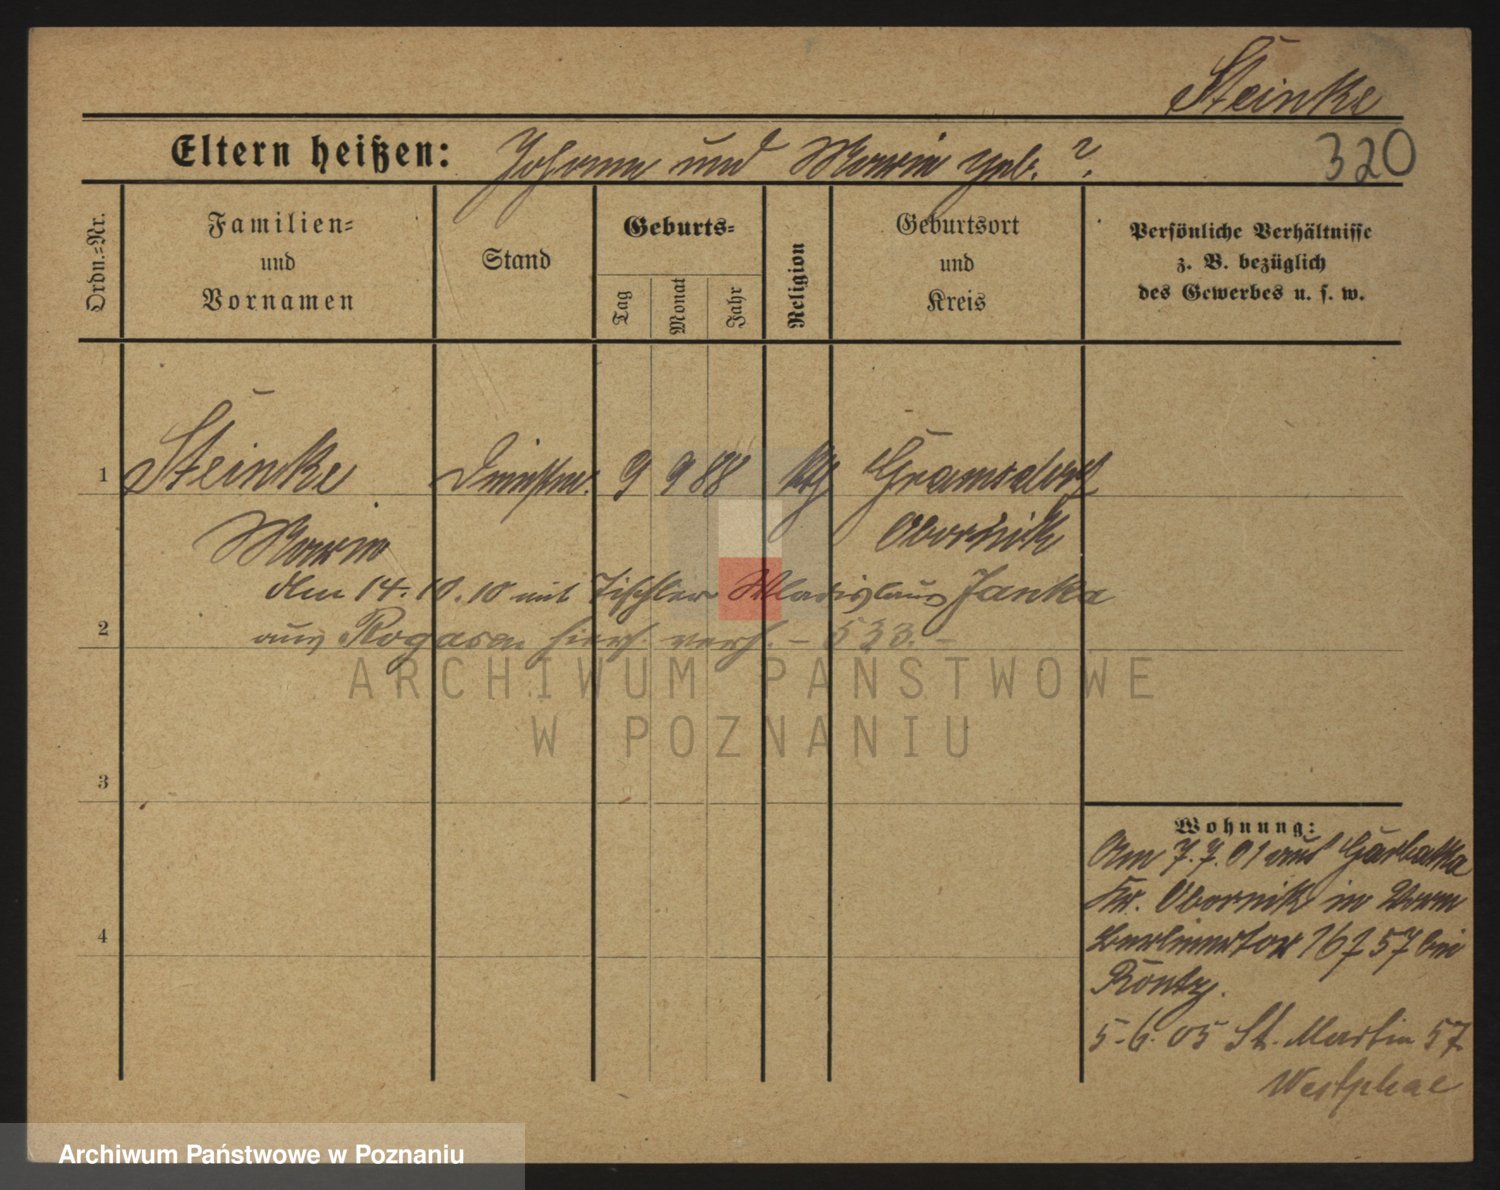 Steinke
Eltern heißen: Johann und Marie geb. ?
320
Ordn.=Nr.
Familien=
und
Vornamen
Stand
Geburts=
Tag
Monat
Jahr
Religion
Geburtsort
und
Kreis
Persönliche Verhältnisse
z. B. bezüglich
des Gewerbes u. s. w.
1 Steinke 9 9 88 Gramsdorf
Marie Obornik
den 14.10.10 mit Tischler Wladislaus Janka
2
aus Rogasen hier verh. - 533. -
3
4
Wohnung:
Am 7.7.01 aus
Kr. Obornik in
57 bei
5.6.05 St. Martin 57
Westphal
ARCHIWUM PAŃSTWOWE
W POZNANIU
Archiwum Państwowe w Poznaniu